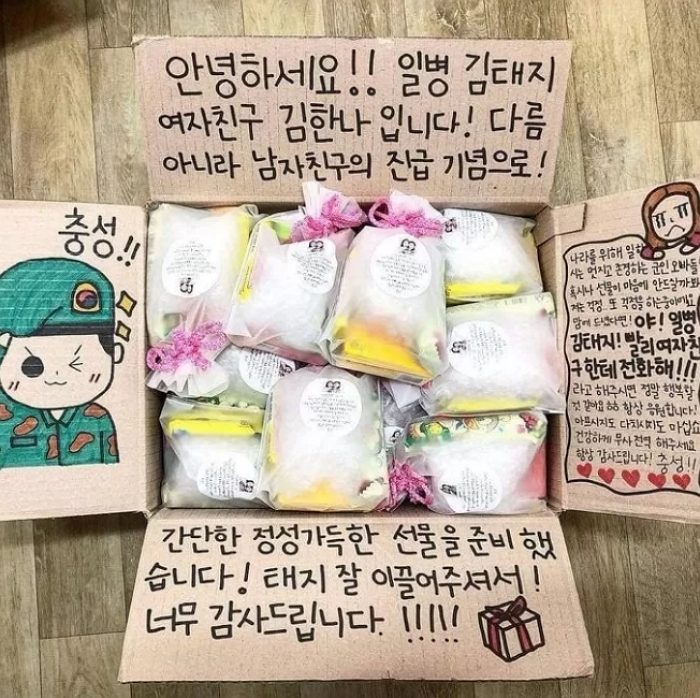 안녕하세요!! 일병 김태지
여자친구 김한나 입니다! 다름
아니라 남자친구의 진급 기념으로!
충성!!
나라를 위해 일하
시는 멋지고 존경하는 군인 오빠들
혹시나 선물이 마음에 안드실까봐
저는 걱정.. 또 걱정을 하는중이에요
맘에 드셨다면! 야! 일병
김태지! 빨리 여자친
구한테 전화해!!!
라고 해주시면 정말 행복할
것 같아요 ㅎㅎ 항상 응원합니다!
아프시지도 다치시지도 마십쇼
건강하게 무사 전역 해주세요
항상 감사드립니다! 충성!!
간단한 정성가득한 선물을 준비 했
습니다! 태지 잘 이끌어주셔서!
너무 감사드립니다. !!!!!